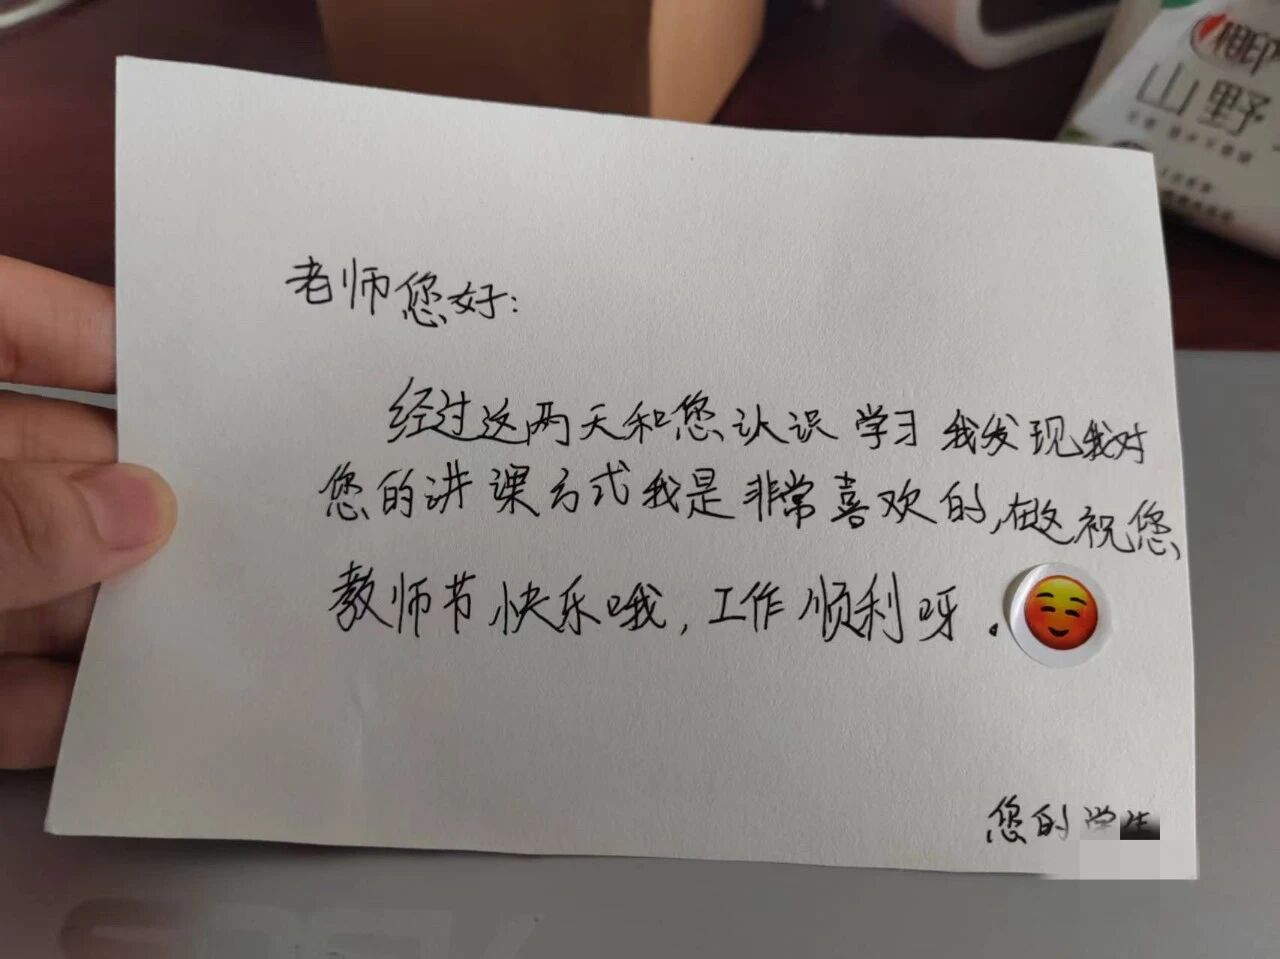 老师您好：
经过这两天和您认识学习我发现我对
您的讲课方式我是非常喜欢的,在这祝您
教师节快乐哦,工作顺利呀.
您的学生
相印
山野